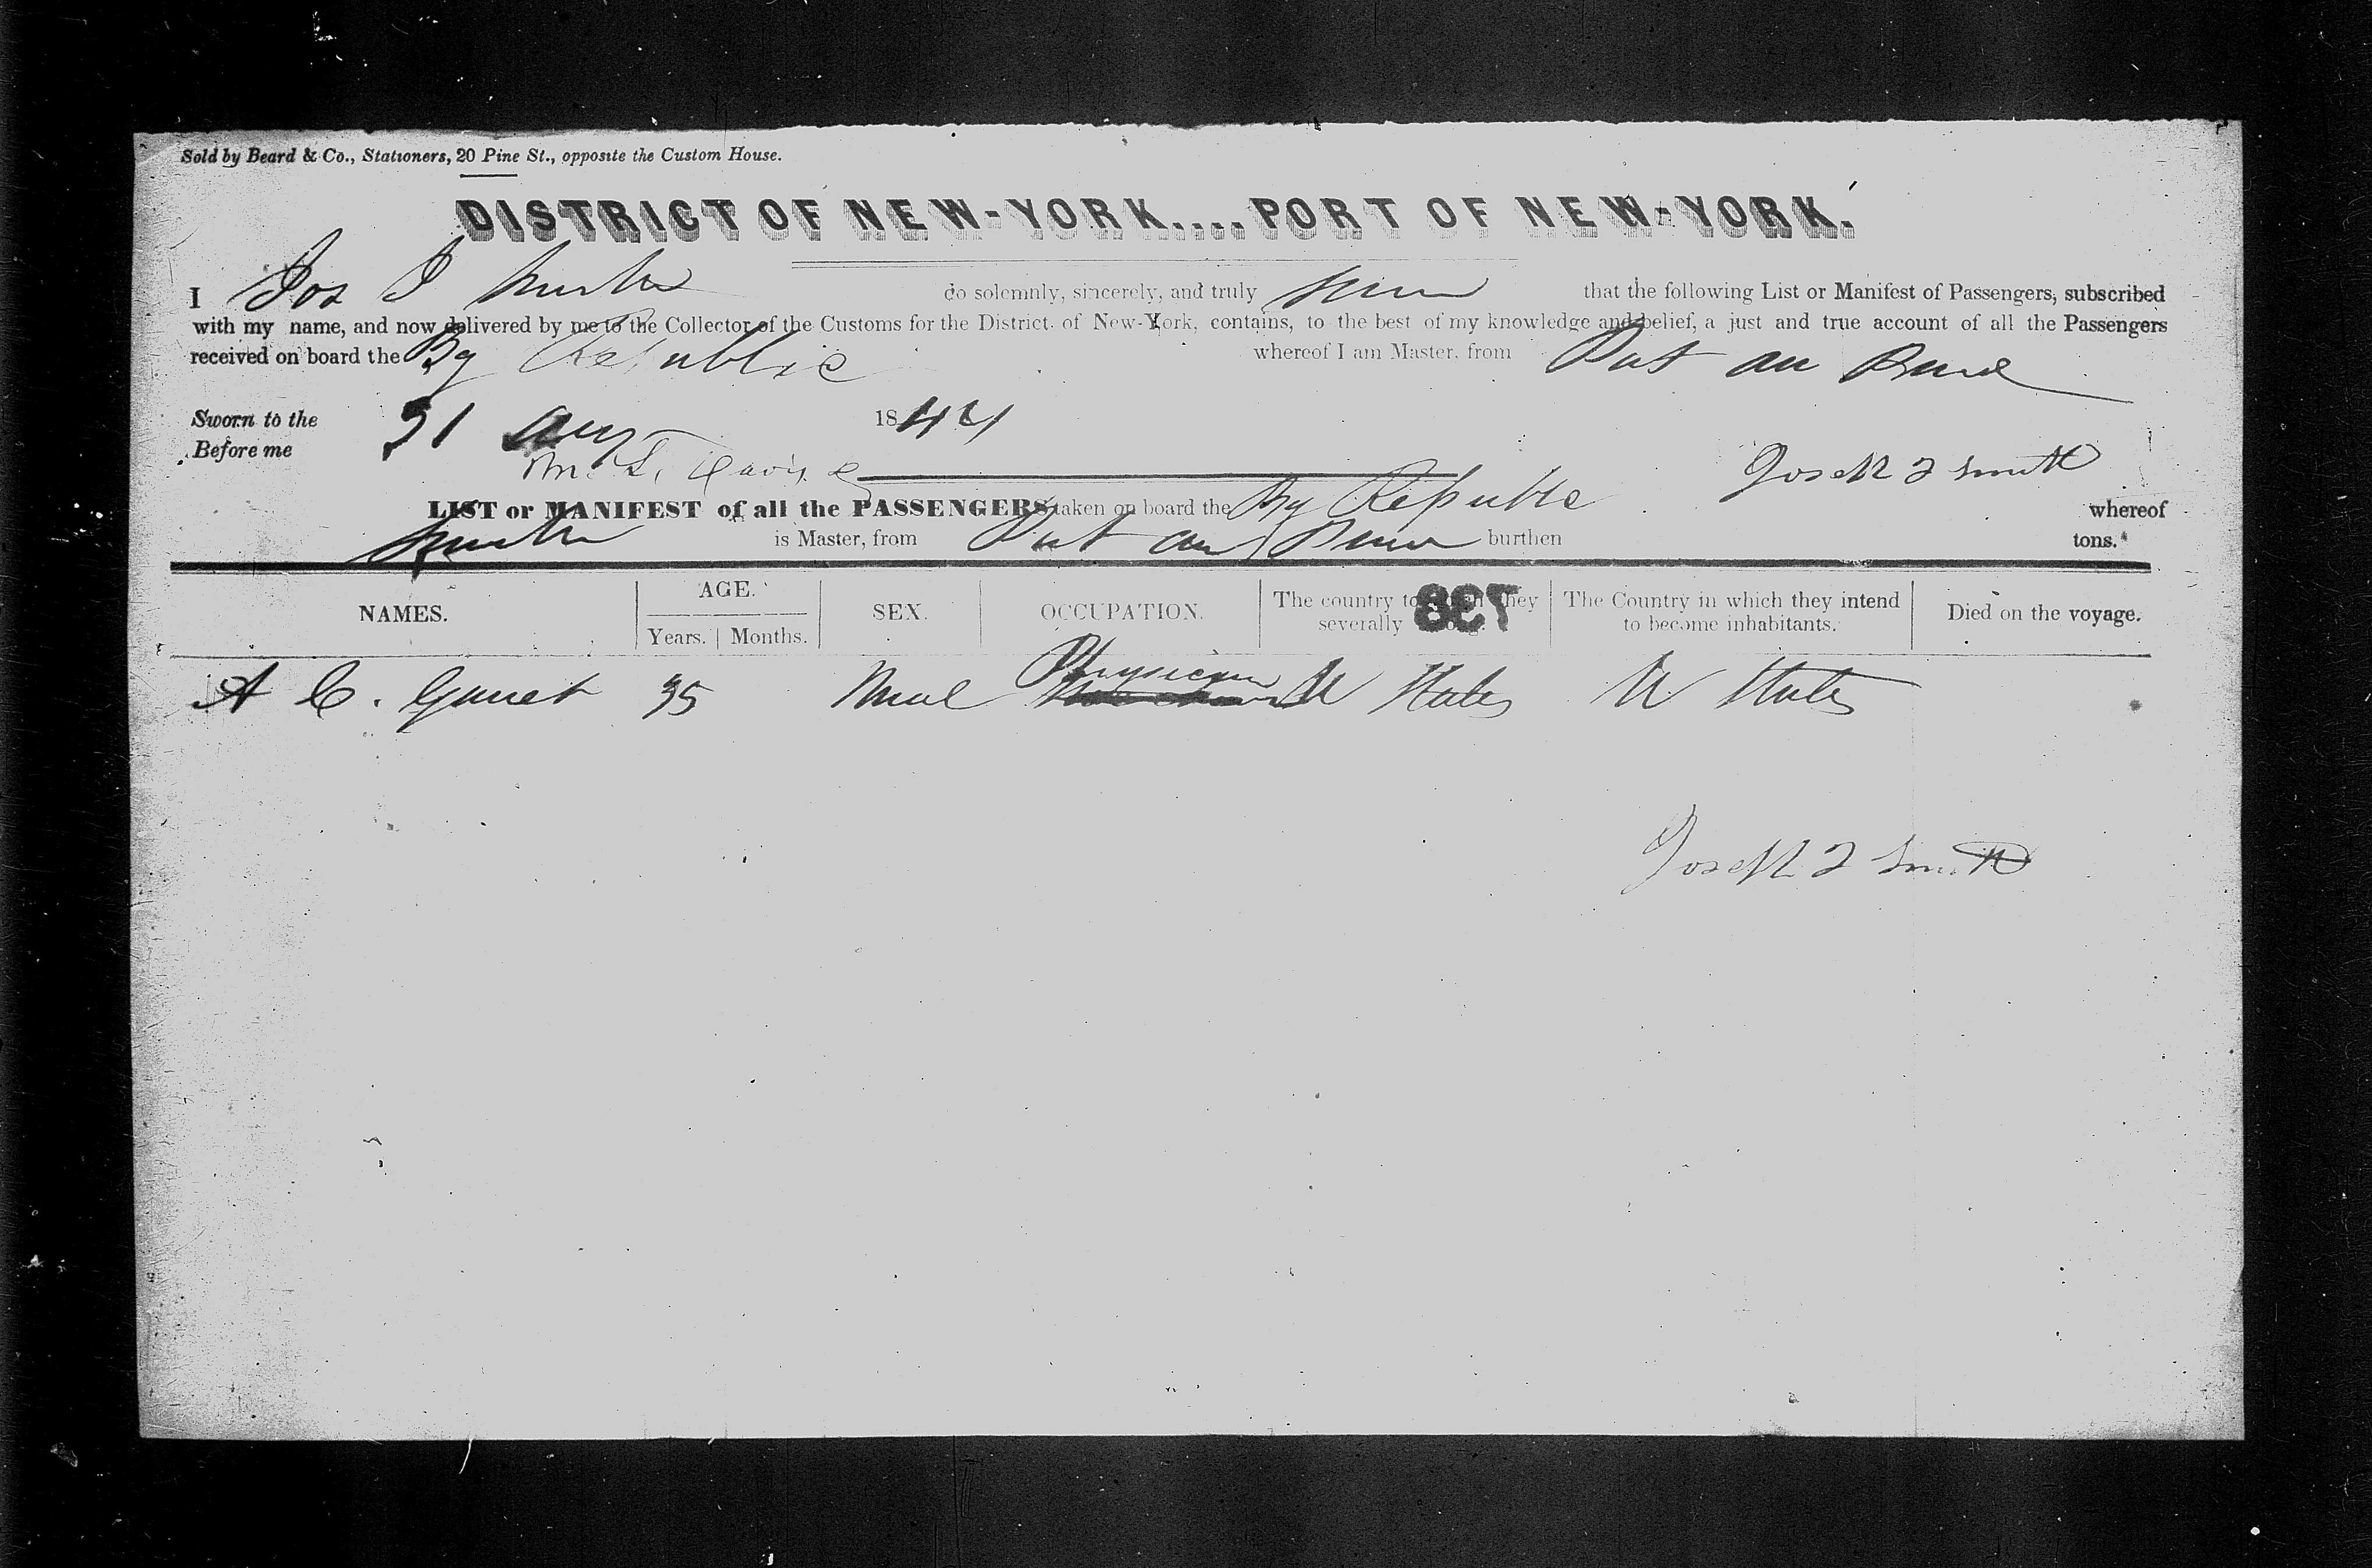 Sold by Beard & Co., Stationers, 20 Pine St., opposite the Custom House.
DISTRICT OF NEW-YORK....PORT OF NEW-YORK.
I Jos J Smith do solemnly, sincerely, and truly swear that the following List or Manifest of Passengers, subscribed
with my name, and now delivered by me to the Collector of the Customs for the District of New-York, contains, to the best of my knowledge and belief, a just and true account of all the Passengers
received on board the Bg Republic whereof I am Master, from Port au Prince
Sworn to the 31 Aug 1844
Before me
Davis Joseph J Smith
LIST or MANIFEST of all the PASSENGERS taken on board the Bg Republic whereof
Smith is Master, from Port au Prince burthen tons.
NAMES. AGE. Years. Months. SEX. OCCUPATION. The country to which they severally belong. The Country in which they intend to become inhabitants. Died on the voyage.
738
A C. 35 Male Physician U States U States
Joseph J Smith